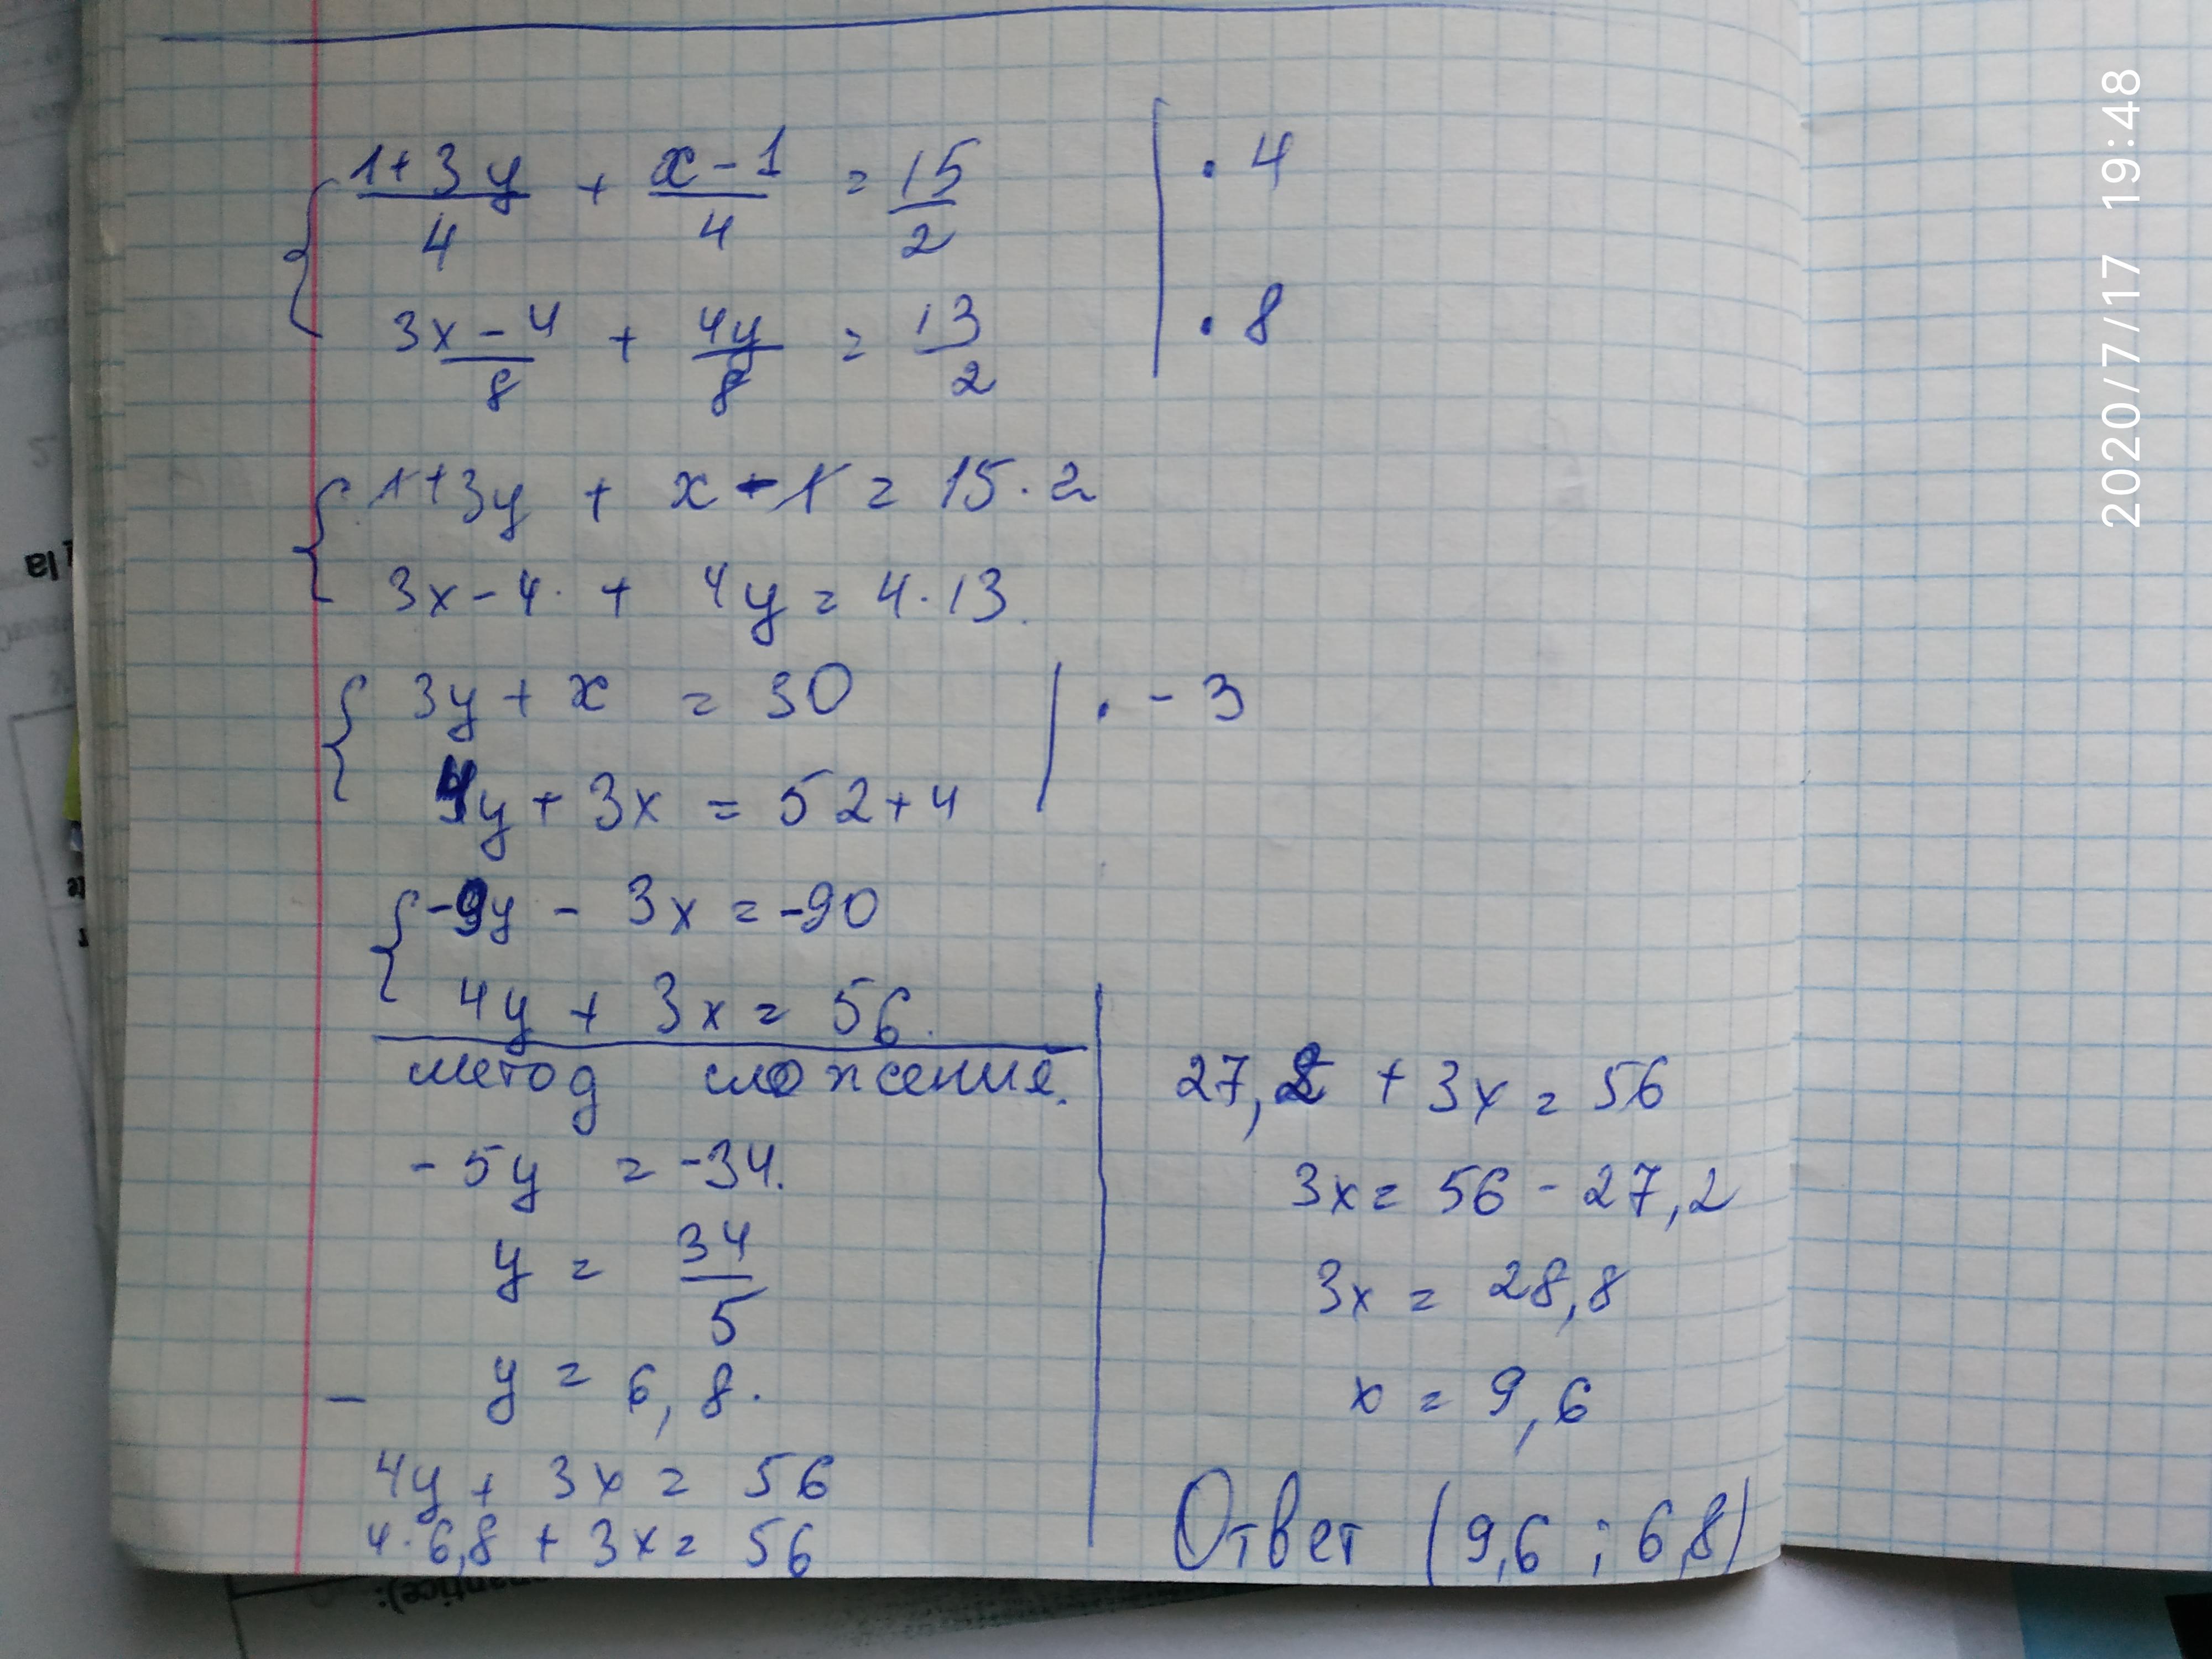 1+3y/4 + x-1/4 = 15/2 | · 4
3x-4/8 + 4y/8 = 13/2 | · 8
1+3y + x-1 = 15·2
3x-4 + 4y = 4·13
3y + x = 30 | · -3
4y + 3x = 52+4
-9y - 3x = -90
4y + 3x = 56.
метод сложения.
-5y = -34.
y = 34/5
y = 6,8.
4y + 3x = 56
4·6,8 + 3x = 56
27,2 + 3x = 56
3x = 56 - 27,2
3x = 28,8
x = 9,6
Ответ (9,6 ; 6,8)
2020/7/17 19:48